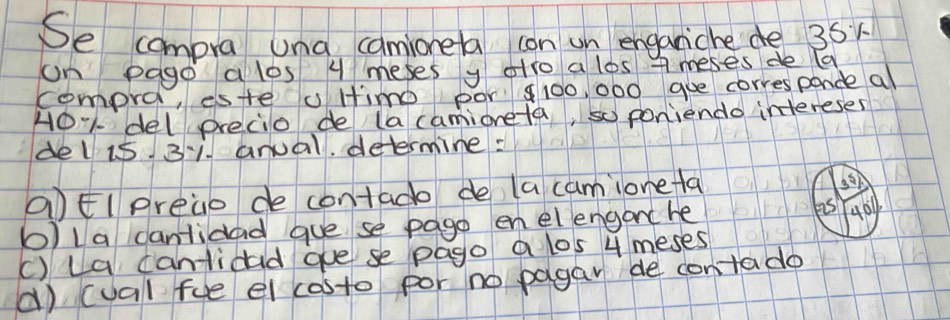 Se compra una camioneta con un enganiche de 35%
un pago a los 4 meses y otro a los 7 meses de la
compra, este ultimo por $100,000 que corresponde al
40% del precio de la camioneta, suponiendo intereses
del 15.3% anual. determine:
a) El precio de contado de la camioneta
b) La cantidad que se pago en el enganche
c) La cantidad que se pago a los 4 meses
d) Cual fue el costo por no pagar de contado
35%
25
40%